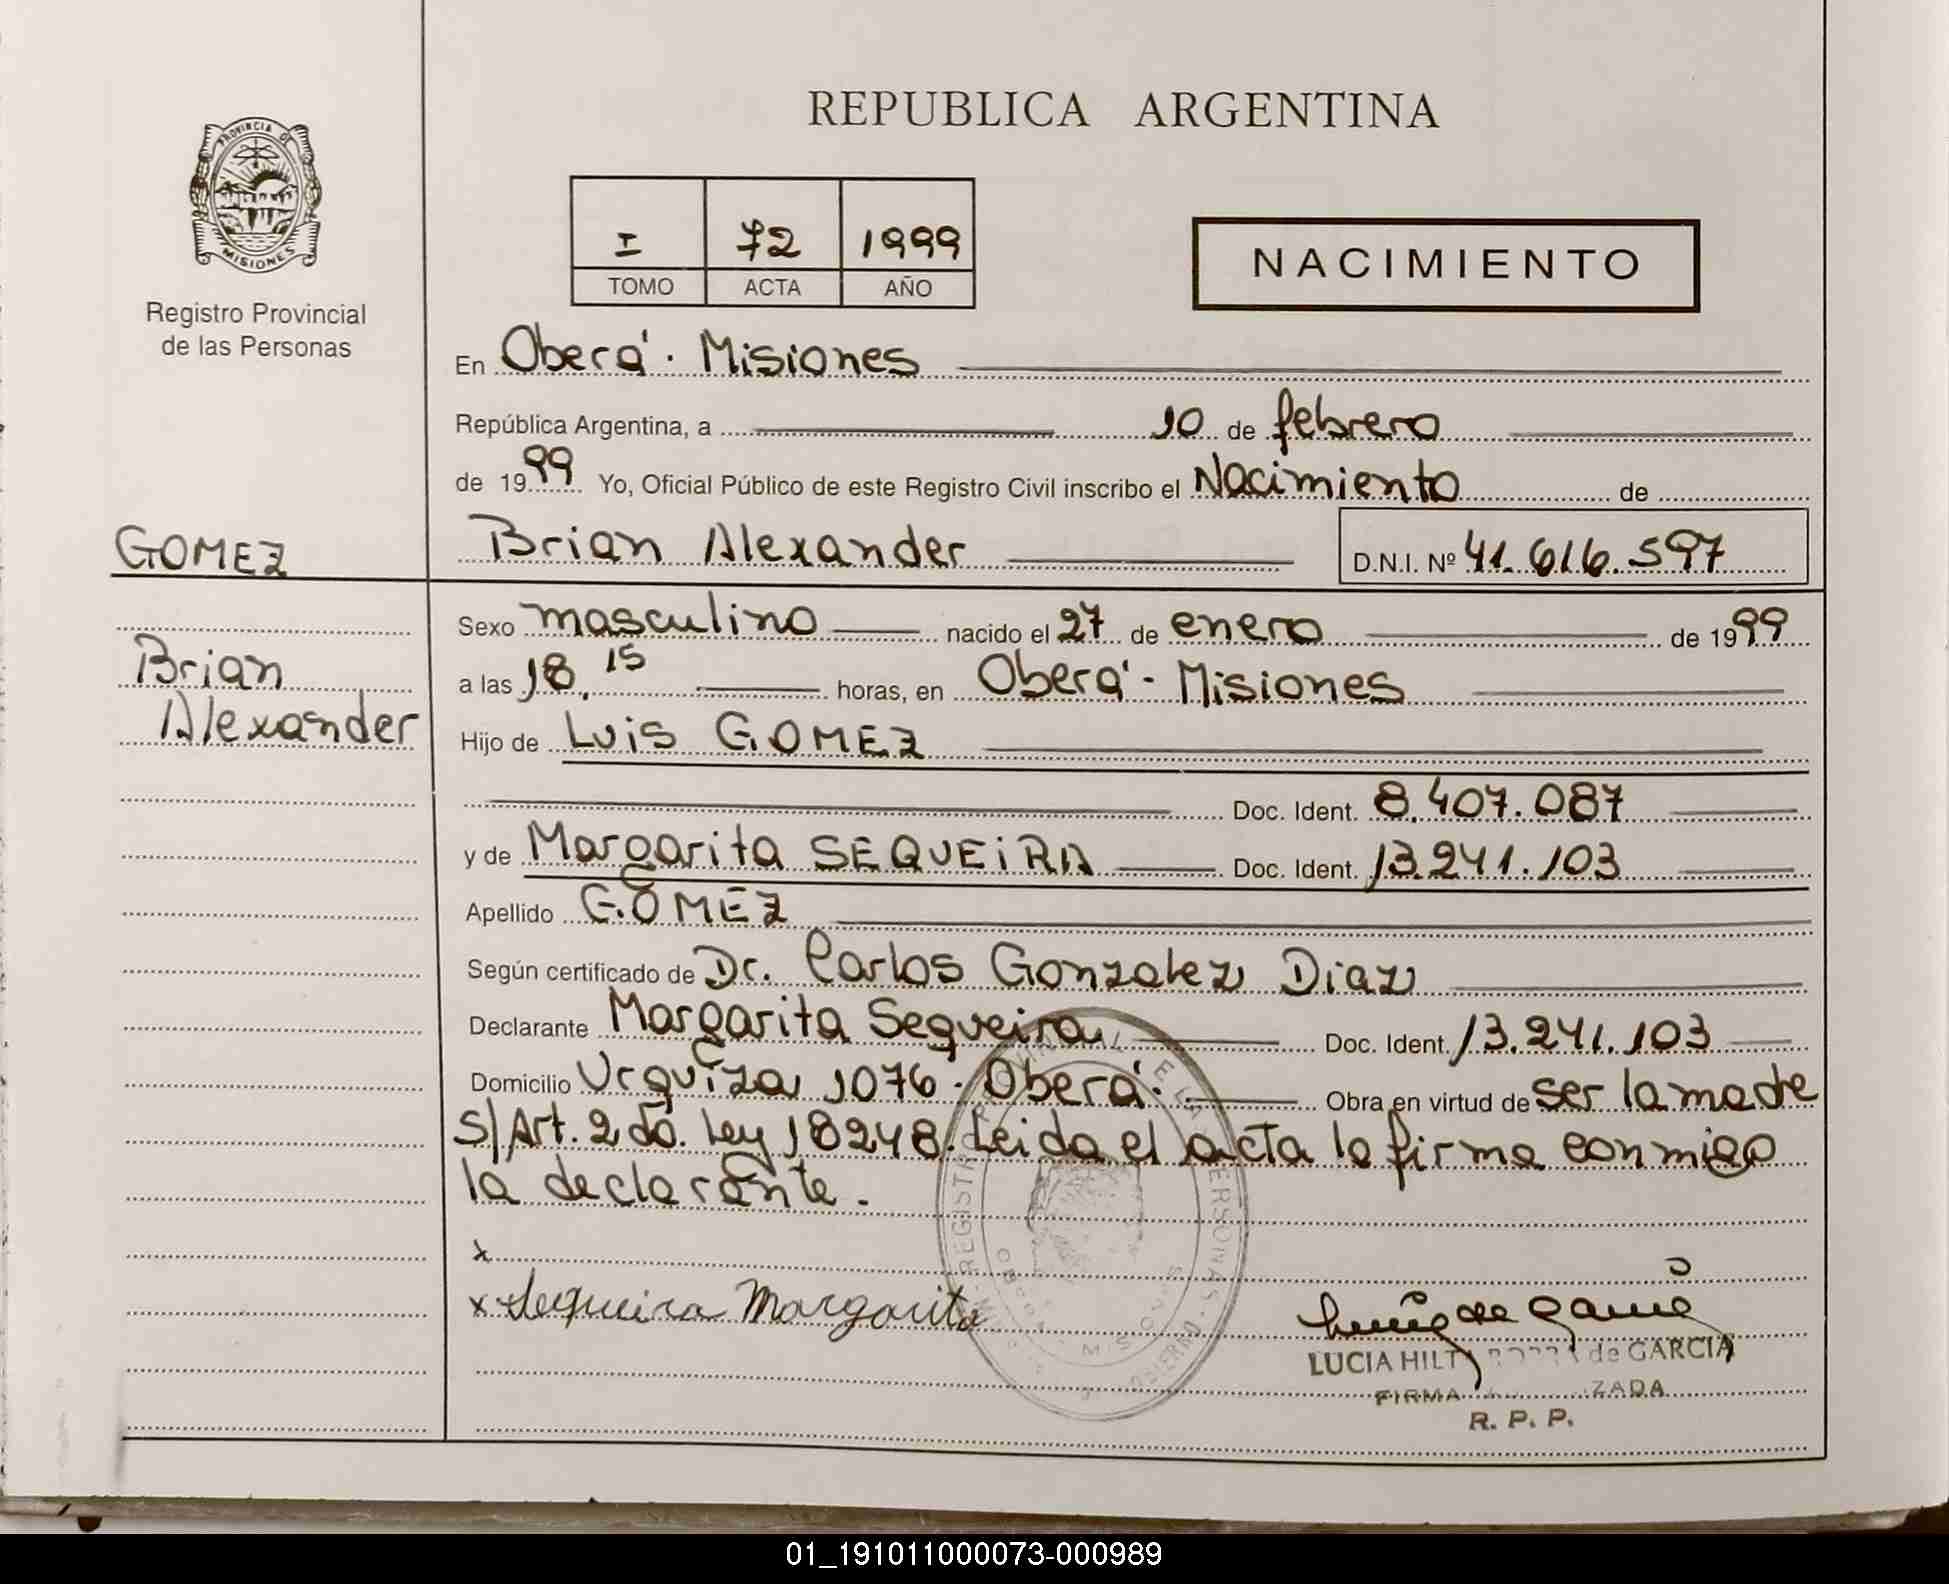 REPUBLICA ARGENTINA
PROVINCIA DE
MISIONES
Registro Provincial
de las Personas
I 72 1999
TOMO ACTA AÑO
NACIMIENTO
En Oberá. Misiones
República Argentina, a 10 de febrero
de 1999 Yo, Oficial Público de este Registro Civil inscribo el Nacimiento de
GOMEZ
Brian Alexander D.N.I. Nº 41.616.597
Brian
Alexander
Sexo masculino nacido el 27 de enero de 1999
a las 18,15 horas, en Oberá - Misiones
Hijo de Luis GOMEZ
Doc. Ident. 8.407.087
y de Margarita SEQUEiRA Doc. Ident. 13.241.103
Apellido GOMEZ
Según certificado de Dr. Carlos Gonzalez Diaz
Declarante Margarita Sequeira Doc. Ident. 13.241.103
Domicilio Urquiza 1076. Oberá. Obra en virtud de ser la madre
S/Art. 2do. Ley 18248. Leida el acta la firma conmigo
la declarante.
x
x Sequeira Margarita
LUCIA de GARCIA
FIRMA
R. P. P.
01_191011000073-000989